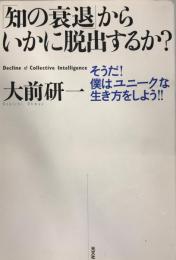 「知の衰退」から
いかに脱出するか?
Decline of Collective Intelligence
そうだ!
僕はユニークな
生き方をしよう!!
大前研一
Kenichi Ohmae
光文社